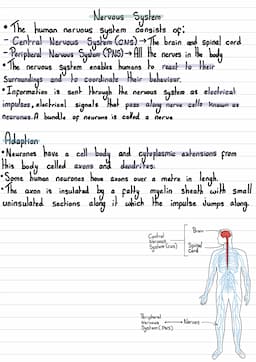 Nervous System
• The human nervous system consists of:
- Central Nervous System (CNS) → The brain and spinal cord
- Peripheral Nervous System (PNS) → All the nerves in the body
• The nervous system enables humans to react to their
surroundings and to coordinate their behaviour.
• Information is sent through the nervous system as electrical
impulses, electrical signals that pass along nerve cells known as
neurones. A bundle of neurons is called a nerve
Adaption
• Neurones have a cell body and cytoplasmic extensions from
this body called axons and dendrites.
• Some human neurones have axons over a metre in length.
• The axon is insulated by a fatty myelin sheath with small
uninsulated sections along it which the impulse jumps along.
Brain
Central
Nervous
System (CNS)
Spinal
Cord
Peripheral
Nervous
System (PNS)
Nerves